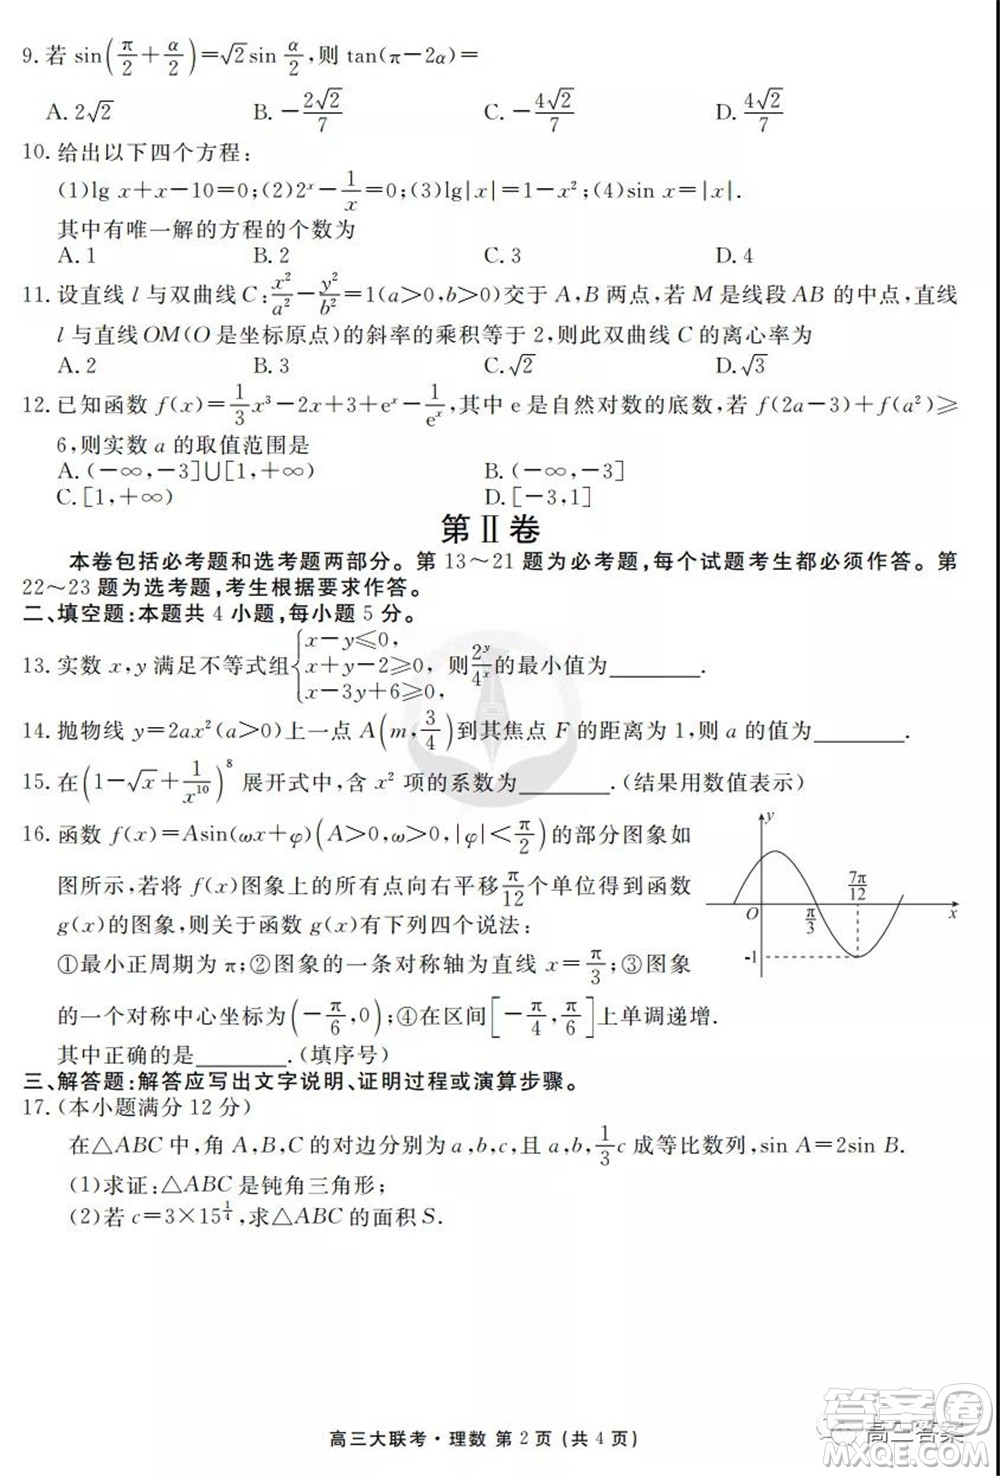 9. 若 sin(π/2+α/2)=√2sin α/2,则 tan(π−2α)=
A. 2√2 B. −2√2/7 C. −4√2/7 D. 4√2/7
10. 给出以下四个方程:
(1)lg x+x−10=0;(2)2^x−1/x=0;(3)lg|x|=1−x²;(4)sin x=|x|.
其中有唯一解的方程的个数为
A. 1 B. 2 C. 3 D. 4
11. 设直线 l 与双曲线 C:x²/a²−y²/b²=1(a>0,b>0)交于 A,B 两点,若 M 是线段 AB 的中点,直线
l 与直线 OM(O 是坐标原点)的斜率的乘积等于 2,则此双曲线 C 的离心率为
A. 2 B. 3 C. √2 D. √3
12. 已知函数 f(x)=1/3x³−2x+3+e^x−1/e^x,其中 e 是自然对数的底数,若 f(2a−3)+f(a²)≥
6,则实数 a 的取值范围是
A. (−∞,−3]∪[1,+∞) B. (−∞,−3]
C. [1,+∞) D. [−3,1]
第Ⅱ卷
本卷包括必考题和选考题两部分。第 13～21 题为必考题,每个试题考生都必须作答。第
22～23 题为选考题,考生根据要求作答。
二、填空题:本题共 4 小题,每小题 5 分。
13. 实数 x,y 满足不等式组{x−y≤0, x+y−2≥0, x−3y+6≥0, 则2^y/4^x的最小值为________.
14. 抛物线 y=2ax²(a>0)上一点 A(m,3/4)到其焦点 F 的距离为 1,则 a 的值为________.
15. 在(1−√x+1/x^10)^8 展开式中,含 x² 项的系数为________.(结果用数值表示)
16. 函数 f(x)=Asin(ωx+φ)(A>0,ω>0,|φ|<π/2)的部分图象如
图所示,若将 f(x)图象上的所有点向右平移π/12个单位得到函数
g(x)的图象,则关于函数 g(x)有下列四个说法:
①最小正周期为 π;②图象的一条对称轴为直线 x=π/3;③图象
的一个对称中心坐标为(−π/6,0);④在区间[−π/4,π/6]上单调递增.
其中正确的是________.(填序号)
y
7π/12
O π/3 x
-1
三、解答题:解答应写出文字说明、证明过程或演算步骤。
17. (本小题满分 12 分)
在△ABC 中,角 A,B,C 的对边分别为 a,b,c,且 a,b,1/3c 成等比数列,sin A=2sin B.
(1)求证:△ABC 是钝角三角形;
(2)若 c=3×15^(1/4),求△ABC 的面积 S.
高三大联考·理数 第 2 页 (共 4 页)
答案卷
高三答案